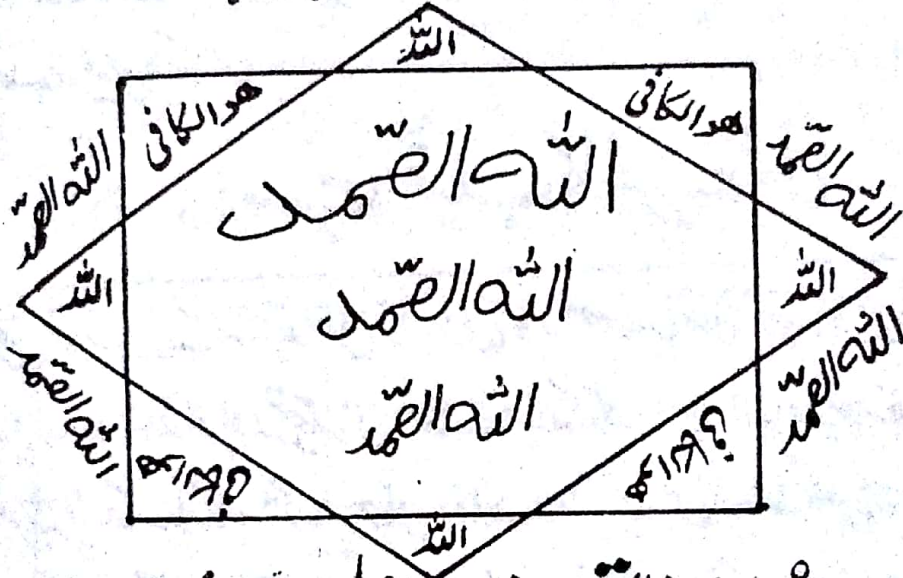 اللہ
هو الکافی
هو الکافی
اللہ الصّمد
اللہ الصّمد
اللہ الصّمد
اللہ الصّمد
اللہ الصّمد
اللہ
اللہ
اللہ الصّمد
اللہ الصّمد
هو الکافی
هو الکافی
اللہ